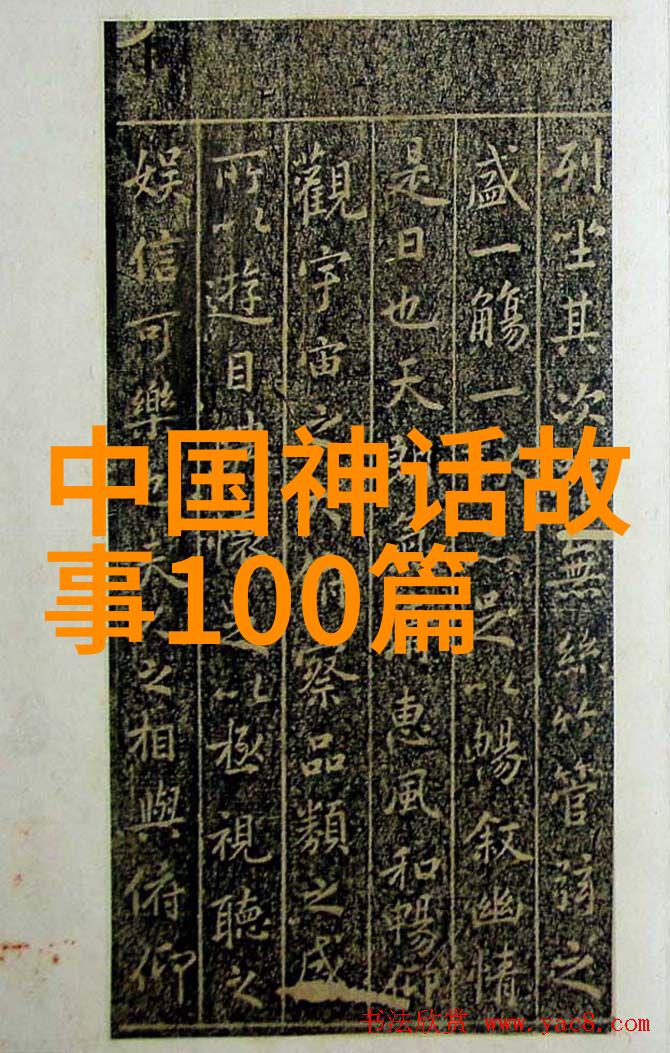 列坐其次無絲竹管弦之
盛一觴一足以暢叙幽情
是日也天惠風和暢仰
觀宇宙之察品類之盛
所以遊目懷足以極視聽之
娛信可樂夫之相與俯仰
中国神话故
事100篇
书法欣赏 www.yac8.com